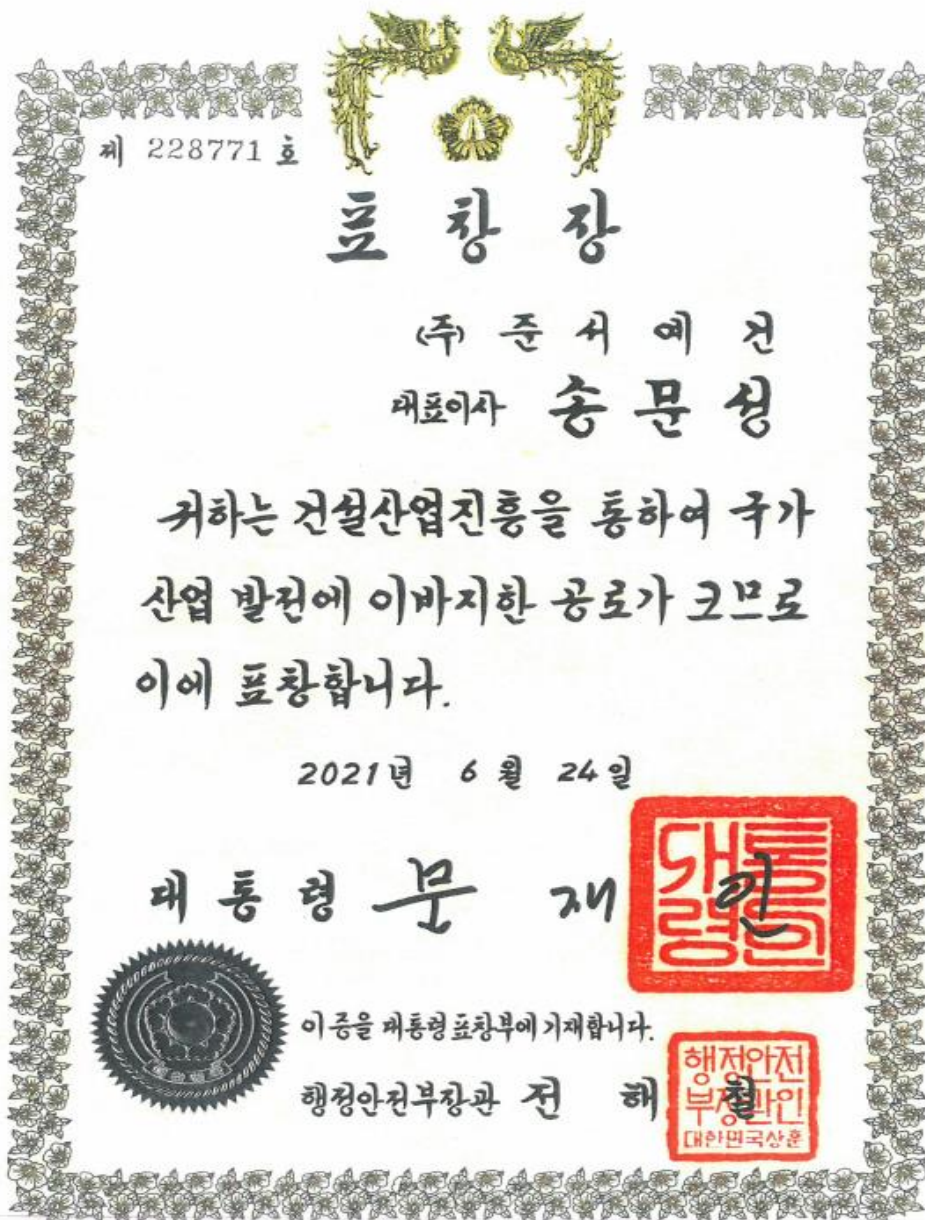 제 228771 호
표창장
(주) 준서예건
대표이사 송문성
귀하는 건설산업진흥을 통하여 국가
산업 발전에 이바지한 공로가 크므로
이에 표창합니다.
2021년 6월 24일
대통령 문재인
대통령의인
이 증을 대통령표창부에 기재합니다.
행정안전부장관 전해철
행정안전
부장관인
대한민국상훈